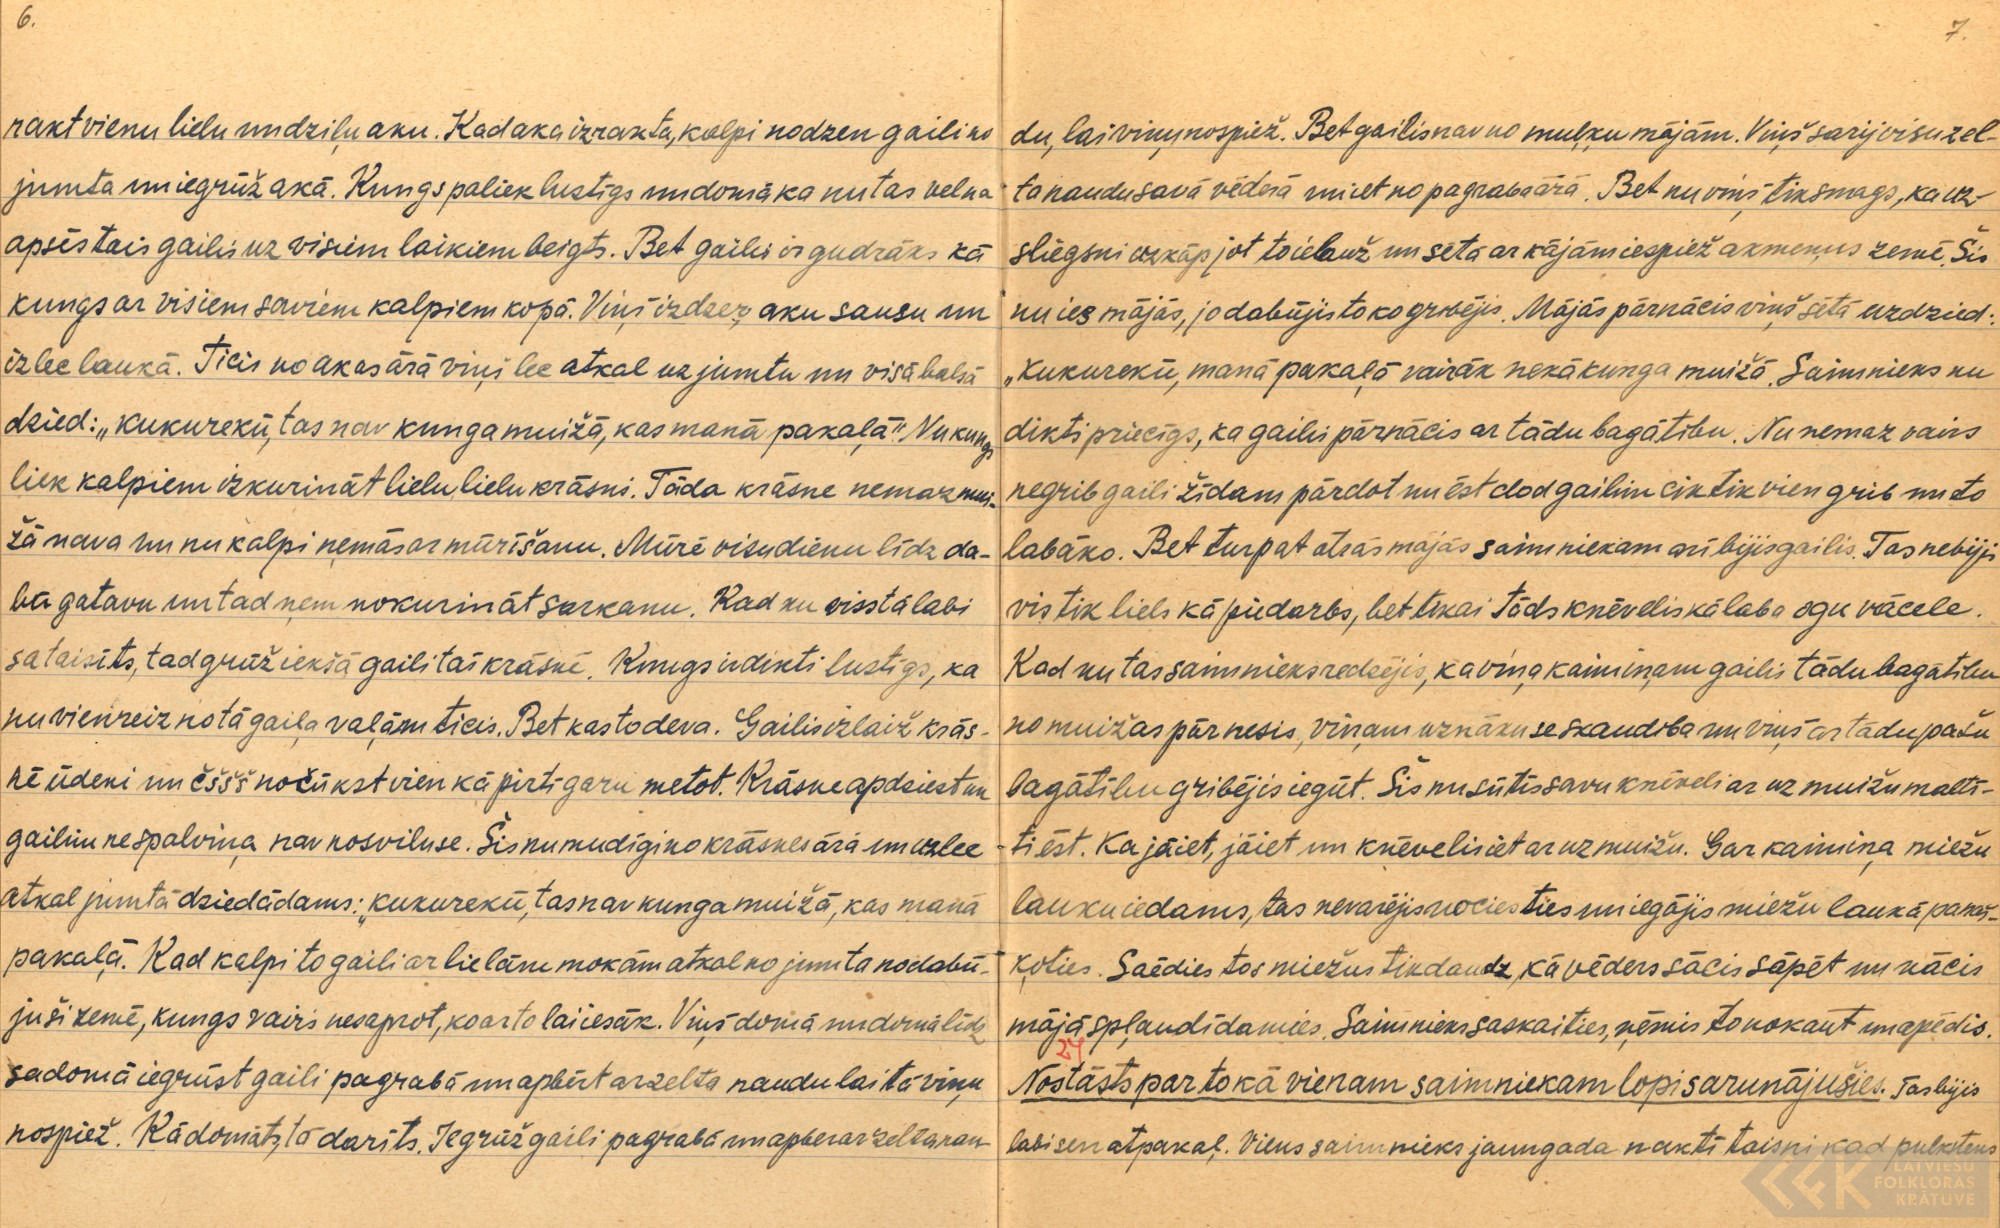 6.
rakt vienu lielu un dziļu aku. Kad aka izrakta, kalpi nodzen gaili no
jumta un iegrūž akā. Kungs paliek lustīgs un domā ka nu tas velna
apsēstais gailis uz visiem laikiem beigts. Bet gailis ir gudrāks kā
kungs ar visiem saviem kalpiem kopā. Viņš izdzeŗ aku sausu un
izlec laukā. Ticis no akas ārā viņš lec atkal uz jumtu un visā balsā
dzied: „Kukurekū, tas nav kunga muižā, kas manā pakaļā" Nu kungs
liek kalpiem izkurināt lielu, lielu krāsni. Tāda krāsne nemaz mui-
žā nava un nu kalpi ņemās ar mūrīšanu. Mūrē visu dienu līdz da-
bū gatavu un tad ņem nokurināt sarkanu. Kad nu viss tā labi
sataisīts, tad grūž iekšā gaili tai krāsnē. Kungs ir dikti lustīgs, ka
nu vienreiz no tā gaiļa vaļām ticis. Bet kas to deva. Gailis izlaiž krās-
nē ūdeni un čššš nočūkst vien kā pirtī garu metot. Krāsne apdziest un
gailim ne spalviņa nav nosviluse. Šis nu mudīgi no krāsnes ārā un uzlec
atkal jumtā dziedādams: „kukurekū, tas nav kunga muižā, kas manā
pakaļā. Kad kalpi to gaili ar lielām mokām atkal no jumta nodabū-
juši zemē, kungs vairs nesaprot, ko ar to lai iesāk. Viņš domā un domā līdz
sadomā iegrūst gaili pagrabā un apbērt ar zelta naudu lai tā viņu
nospiež. Kā domāts, tā darīts. Iegrūž gaili pagrabā un apber ar zelta nau-
7.
du, lai viņu nospiež. Bet gailis nav no muļķu mājām. Viņš sarij visu zel-
ta naudu savā vēderā un iet no pagraba ārā. Bet nu viņš tik smags, ka uz
sliegsni uzkāpjot to ielauž un sētā ar kājām iespiež akmeņus zemē. Šis
nu ies mājās, jo dabūjis to ko gribējis. Mājās pārnācis viņš sētā uzdzied:
„Kukurekū, manā pakaļā vairāk nekā kunga muižā. Saimnieks nu
dikti priecīgs, ka gailis pārnācis ar tādu bagātību. Nu nemaz vairs
negrib gaili žīdam pārdot un ēst dod gailim cik tik vien grib un to
labāko. Bet turpat otrās mājās saimniekam arī bijis gailis. Tas nebijis
vis tik liels kā piedarbs, bet tikai tāds knēvelis kā laba ogu vācele.
Kad nu tas saimnieks redzējis, ka viņa kaimiņam gailis tādu bagātību
no muižas pārnesis, viņam uznākuse skaudība un viņš ar tādu pašu
bagātību gribējis iegūt. Šis nu sūtīs savu knēveli ar uz muižu maltī-
ti ēst. Ka jāiet, jāiet un knēvelis iet ar uz muižu. Gar kaimiņa miežu
lauku iedams, tas nevarējis nociesties un iegājis miežu laukā pakaš-
ķoties. Saēdies tos miežus tik daudz, kā vēders sācis sāpēt un nācis
mājā spļaudīdamies. Saimnieks saskaities, ņēmis to nokaut un apēdis.
24
Nostāsts par to kā vienam saimniekam lopi sarunājušies. Tas bijis
labi sen atpakaļ. Viens saimnieks jaungada naktī taisni kad pulkstens
LATVIEŠU
FOLKLORAS
KRĀTUVE